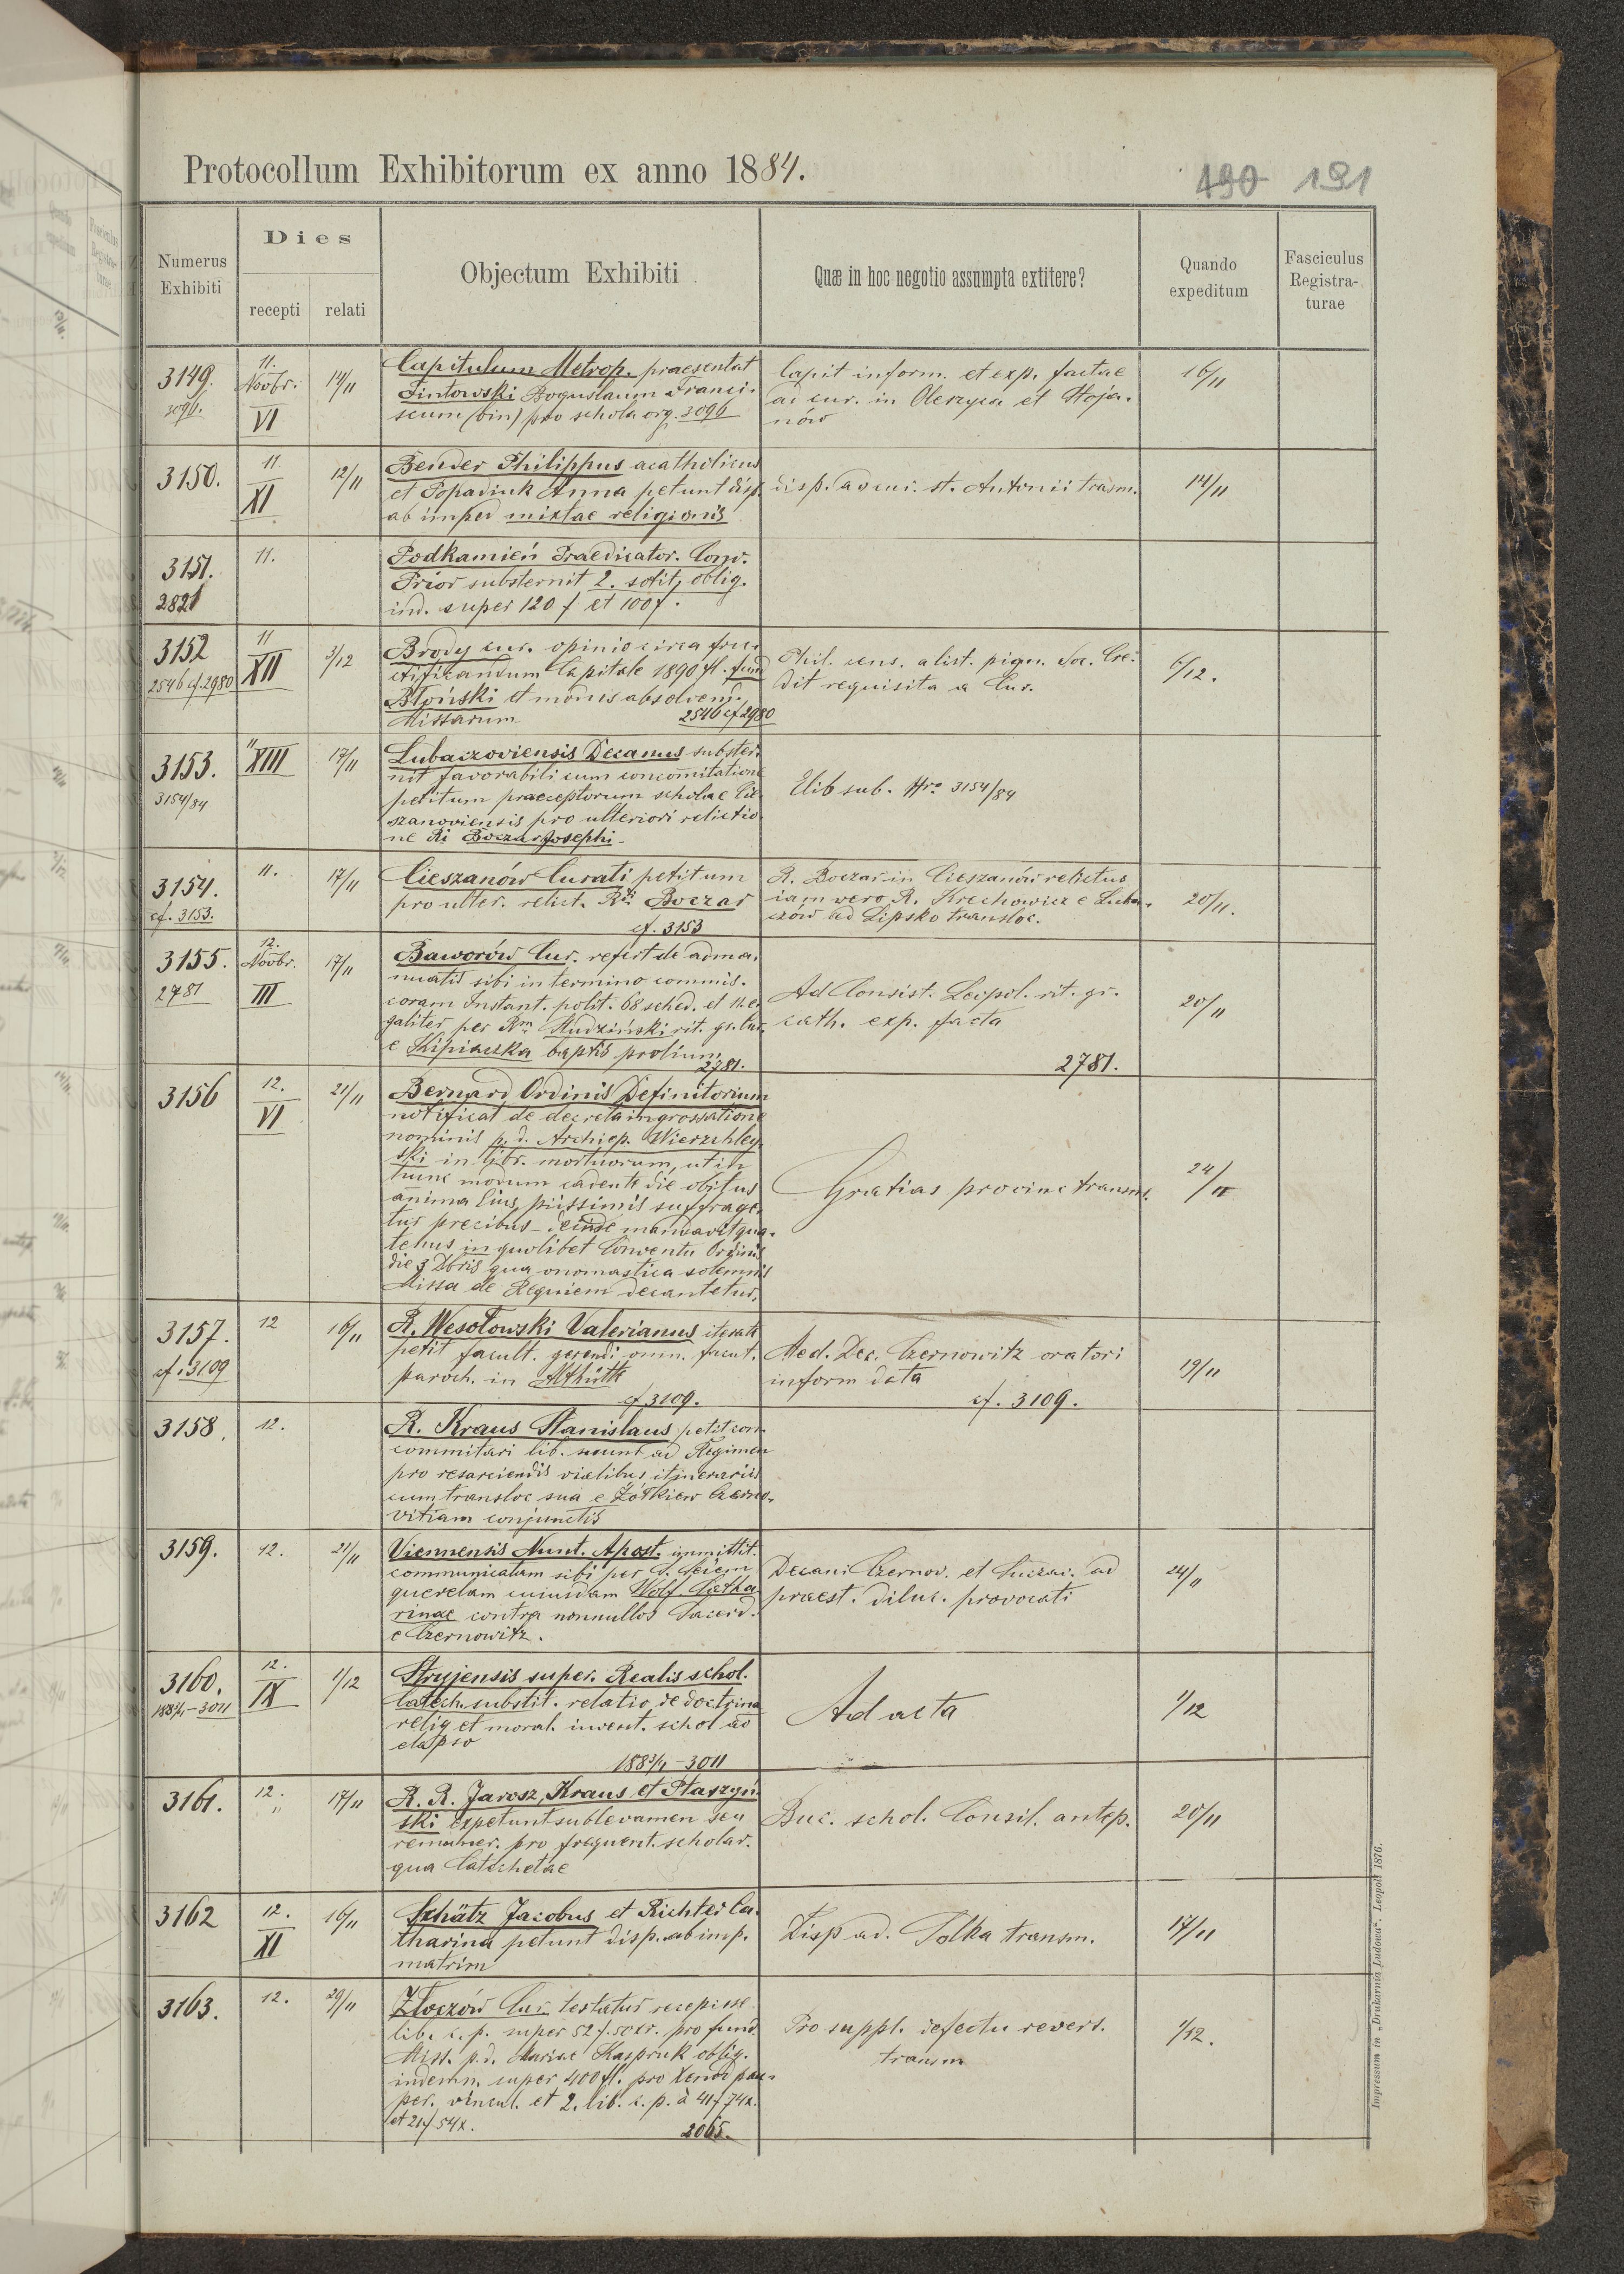 Protocollum Exhibitorum ex anno 1884.
490 191
Numerus Exhibiti
Dies
recepti
relati
Objectum Exhibiti
Quæ in hoc negotio assumpta extitere?
Quando expeditum
Fasciculus Registra-turae
3149.
3096.
11. Novbr.
VI
14/11
Capitulum Metrop. praesentat
Boguslaum Franci-
scum (bin) pro schola org. 3096
Capit inform. et exp. factae
ad cur. in Oleszyca et Stoja-
nów
16/11
3150.
11.
XI
12/11
Bender Philippus acatholicus
et Popadiuk Anna petunt disp.
ab imped mixtae religionis
disp. ad cur. st. Antonii transm.
14/11
3151.
2821
11.
Podkamień Praedicator. Conv.
Prior substernit 2. solit. oblig.
ind. super 120 f et 100 f.
3152
2546 cf. 2980
11
XII
3/12
Brody cur. opinio circa fru-
ctificandum Capitale 1890 fl. fund
Błoński et modus absolvend.
Missarum
2546 cf 2980
a list. pign. Soc. Cre-
dit requisita a Cur.
6/12.
3153.
3154/84
11
XIII
17/11
Lubaczoviensis Decanus subster-
nit favorabili cum concomitatione
petitum praeceptorum scholae Cie-
szanoviensis pro ulteriori relictio-
ne Ri Boczar Josephi
Elib sub. Nro 3154/84
3154.
cf. 3153.
11.
17/11
Cieszanów Curati petitum
pro ulter. relict. Rdi Boczar
cf. 3153
R. Boczar in Cieszanów relictus
iam vero R. Krechowicz e Luba-
czów ad Lipsko transloc.
20/11.
3155.
2781
12. Novbr.
III
17/11
Baworów Cur. refert de adma-
nuatis sibi in termino commis.
coram Instant. polit. 68 sched. et
galiter per Rm Studziński rit. gr. Cur.
e baptis prolium.
2781.
Ad Consist. Leopol. rit. gr.
cath. exp. facta
2781.
20/11
3156
12.
VI
21/11
Bernard Ordinis Definitorium
notificat de decreta ingrossatione
nominis p. d. Archiep. Wierzchley-
ski in libr. mortuorum, ut in
hunc modum cadente die obitus
anima Eius, piissimis suffrage-
tur precibus - deinde mandavit qua-
tenus in quolibet Conventu Ordinis
die 3 Xbris qua onomastica solemnis
Missa de Requiem decantetur.
Gratias provinc transm.
24/11
3157.
cf. 3109
12
16/11
R. Wesołowski Valerianus iterato
petit facult. gerendi omn. funct.
paroch. in Althütte
cf 3109.
Med. Dec. Czernowitz oratori
inform data
cf. 3109.
19/11
3158.
12.
R. Kraus Stanislaus petit con-
commitari lib. suum ad Regimen
pro resarciendis vialibus itinerariis
cum transloc sua e Żółkiew Czerno-
vitiam conjunctis
3159.
12.
21/11
Viennensis Nunt. Apost. inmittit.
communicatam sibi per S. Sedem
querelam cuiusdam Wolf Catha-
rinae contra nonnullos Sacerd.
e Czernowitz.
Decani Czernov. et Suczav. ad
praest. diluc. provocati
24/11
3160.
1883/4-3011
12.
IX
1/12
Stryjensis super. Realis schol.
Catech. substit. relatio de doctrina
relig et moral. invent. schol ao
elapso
1883/4-3011
Ad acta
1/12
3161.
12.
"
17/11
R. R. Jarosz, Kraus et Staszyń-
ski expetunt sublevamen seu
remuner. pro frequent. scholar.
qua Catechetae
Buc. schol. Consil. antep.
20/11
3162
12.
XI
16/11
Schätz Jacobus et Richter Ca-
tharina petunt disp. ab imp.
matrim
Disp ad. Polka transm.
17/11
3163.
12.
29/11
Złoczów Cur. testatur recepisse
lib. c. p. super 52 f. 50 xr. pro fund.
Miss. p. d. Mariae Kaspruk oblig.
indemn. super 400 fl. pro Xenod pau-
per. vincul. et 2. lib. c. p. à 41 f 74 x.
et 21 f 54 x.
2065.
Pro suppl. defectu revers.
transm
1/12.
Impressum in „Drukarnia Ludowa“. Leopoli 1876.